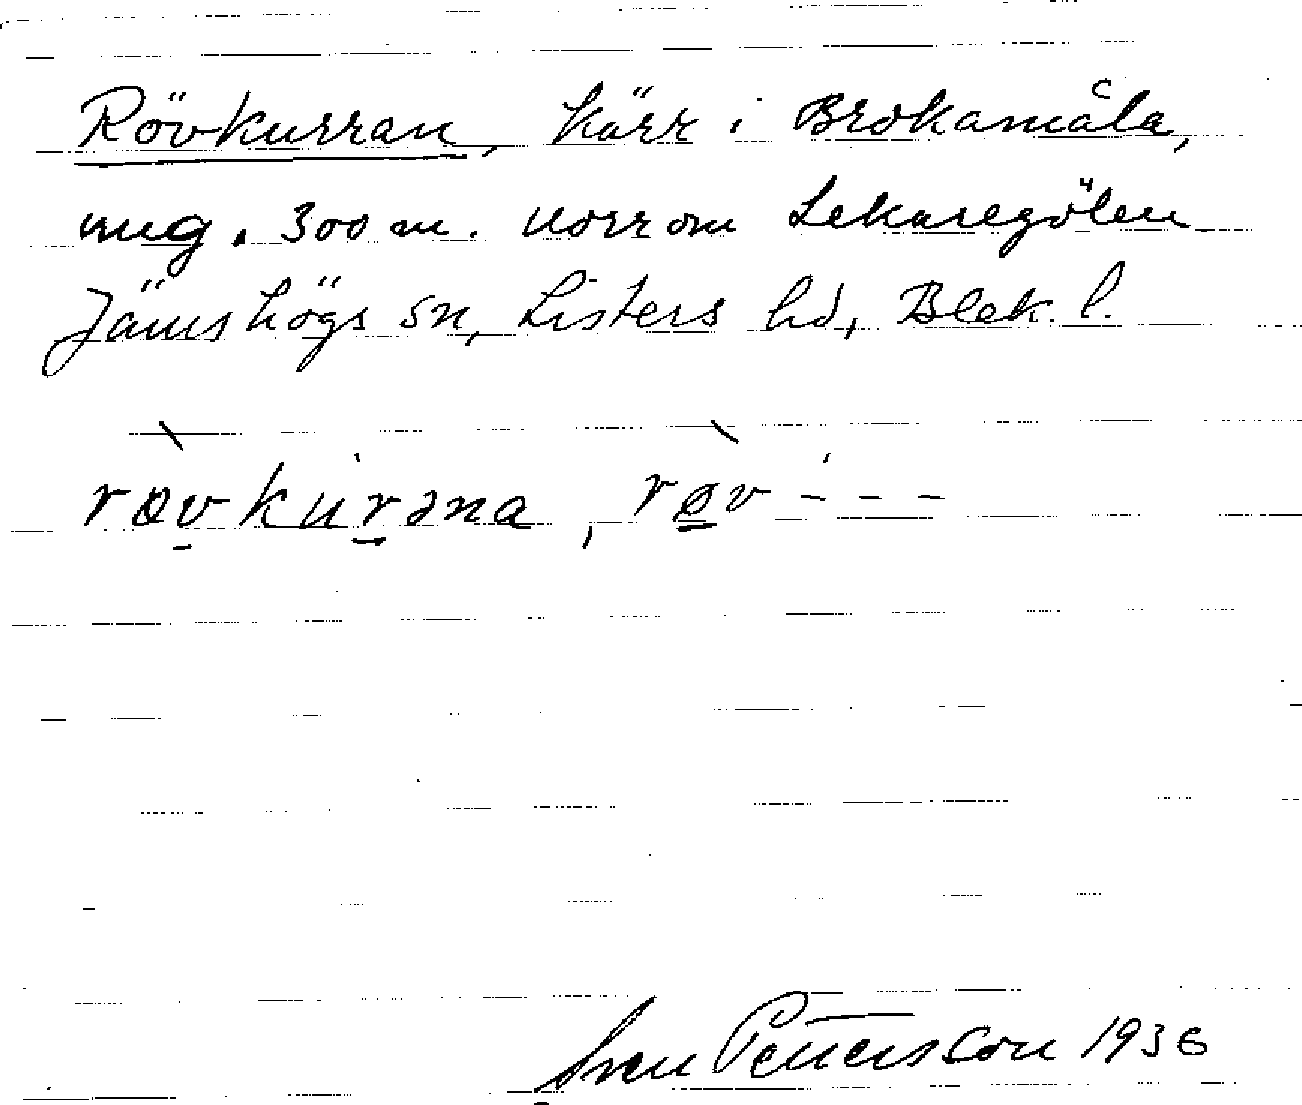 Rövkurran, kärr i Brokamåla,
ung. 300 m. norrom Lekaregölen
Jämshögs sn, Listers hd, Blek. l.
røvkurəna, røv - - -
Sven Pettersson 1936